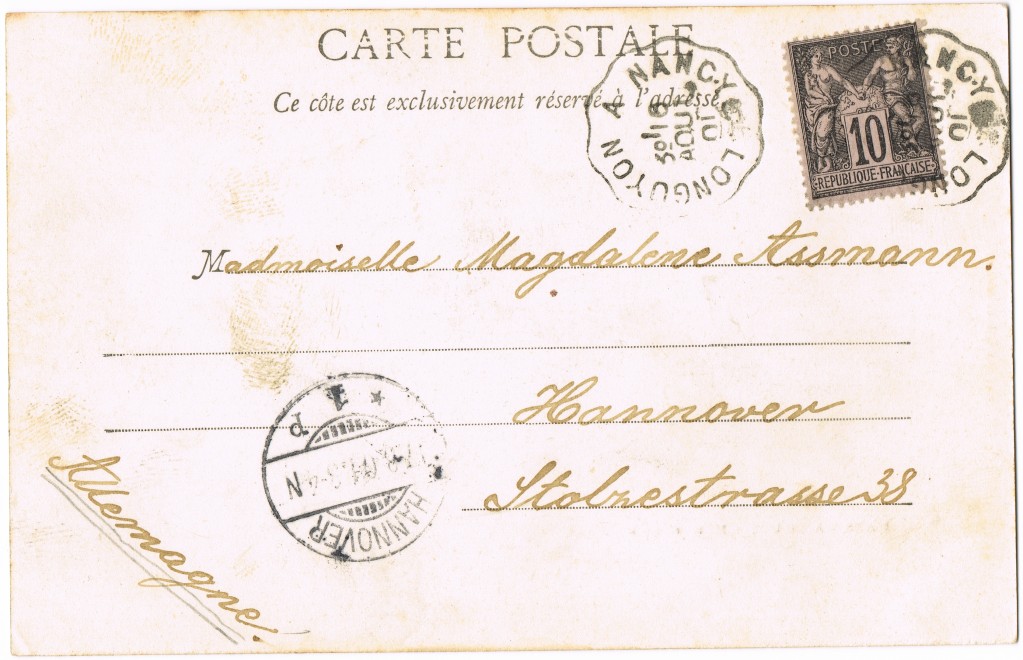 CARTE POSTALE
Ce côté est exclusivement réservé à l'adresse
LONGUYON A NANCY
3º
16
AOUT
01
POSTE
10
REPUBLIQUE FRANÇAISE
NANCY
LONG
01
Madmoiselle Magdalene Assmann.
Hannover
Stolzestrasse 38
HANNOVER
1 P
3-4 N
Allemagne!